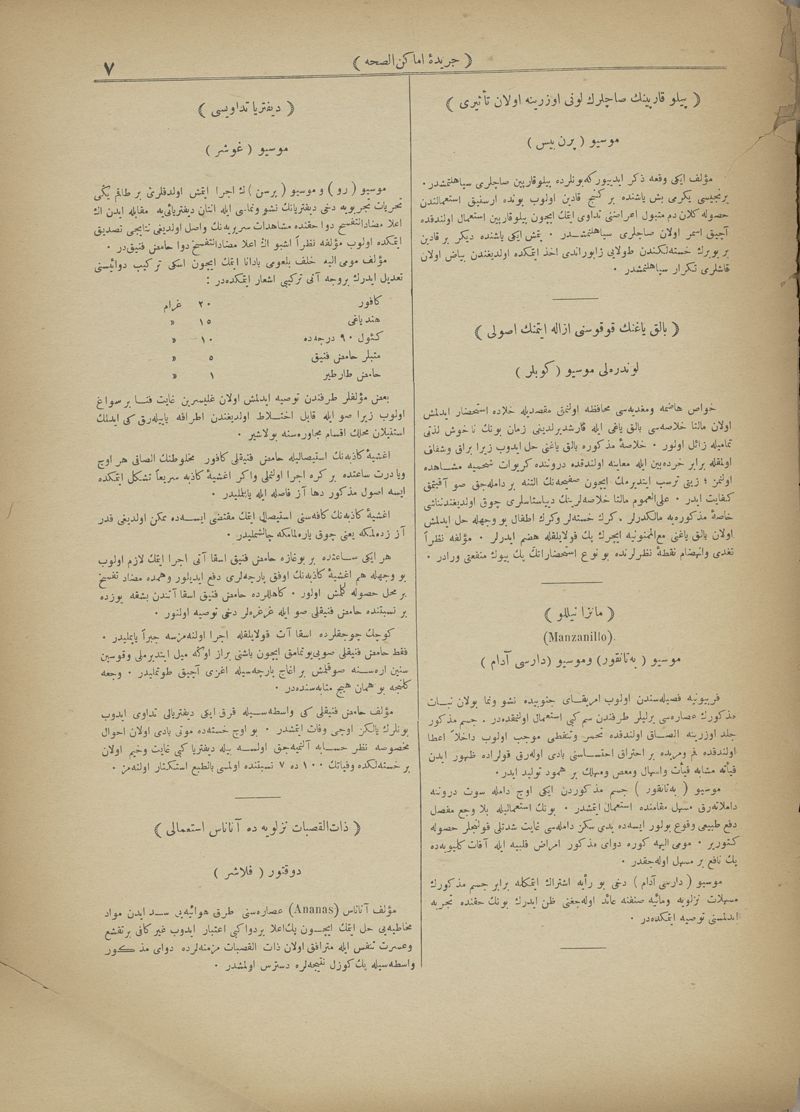 ( جريدهٔ اماكن الصحه )
٧
( پيلو قارپينك صاچلرك لونى اوزرينه اولان تأثيرى )
موسيو ( پرن بيس )
مؤلف ايكى وقعه ذكر ايدييوركه بونلرده پيلوقارپين صاچلرى سياهلتمشدر.
برنجيسى يكرمى بش ياشنده بر كنج قادين اولوب بونده ارسنيق استعمالندن
حصوله كلان دم متبول اعراضنى تداوى ايتمك ايچون پيلوقارپين استعمال اولندقده
آچيق اسمر اولان صاچلرى سياهلتمشدر . يتمش ايكى ياشنده ديكر بر قادين
بر بوبرك خسته‌لكندن طولايى ژابوراندى اخذ ايتمكده اولديغندن بياض اولان
قاشلرى تكرار سياهلتمشدر .
( بالق ياغنك قوقوسنى ازاله ايتمنك اصولى )
لوندره‌لى موسيو ( كوبلر )
خواص هاضمه ومغديه‌سى محافظه اولنمق مقصديله خلاءده استحضار ايدلمش
اولان مالتا خلاصه‌سى بالق ياغى ايله قارشديرلديغى زمان بونك ناخوش لذتى
تماميله زائل اولور . خلاصهٔ مذكوره بالق ياغنى حل ايدوب زيرا براق وشفاف
اولمقله برابر خرده‌بين ايله معاينه اولندقده درونده كريوات شحميه مشاهده
اولنمز ؛ زيتى ترسب ايتديرمك ايچون صفيحه‌نك التنه بر دامله‌جق صو آقيتمق
كفايت ايدر . على‌العموم مالتا خلاصه‌لرينك دياستاسلرى چوق اولديغندنناشى
خاصهٔ مذكوره‌يه مالكدرلر . كرك خسته‌لر وكرك اطفال بو وجهله حل ايدلمش
اولان بالق ياغنى مع‌الممنونيه ايچرك پك قولايلقله هضم ايدرلر . مؤلفه نظراً
تغدى وانهضام نقطهٔ نظرلرنده بو نوع استحضاراتك پك بيوك منفعتى واردر .
( مانزا نيللو )
(Manzanillo).
موسيو ( به‌تانقور) وموسيو (دارسى آدام )
فربيونيه فصيله‌سندن اولوب امريقاى جنوبيده نشو ونما بولان نبات
مذكورك عصاره‌سى يرليلر طرفندن سم كبى استعمال اولنمقده‌در . جسم مذكور
جلد اوزرينه الصاق اولندقده محمر ومنفطى موجب اولوب داخلاً اعطا
اولندقده فم ومريده بر احتراق احتساسنى بادى اوله‌رق قولراده ظهور ايدن
قيأته مشابه قيأت واسهال ومعص ومهلك بر همود توليد ايدر.
موسيو ( به‌تانقور ) جسم مذكوردن ايكى اوچ دامله سوت درونه
داملاته‌رق مسهل مقامنده استعمال ايتمشدر . بونك استعماليله بلا وجع مفصل
دفع طبيعى وقوع بولور ايسه‌ده يدى سكز دامله‌سى غايت شدتلى قولنجلر حصوله
كتورير . مومى اليهه كوره دواى مذكور امراض قلبيه ايله آفات كليويه‌ده
پك نافع بر مسهل اوله‌جقدر .
موسيو ( دارسى آدام ) دخى بو رأيه اشتراك ايتمكله برابر جسم مذكورك
مسهلات نزلويه ومائيه صنفنه عائد اوله‌جغى ظن ايدرك بونك حقنده تجربه
ايدلمسنى توصيه ايتمكده‌در .
( ديفتريا تداويسى )
موسيو ( غوشر )
موسيو ( رو ) و موسيو ( يرسن ) ك اجرا ايتمش اولدقلرى بر طاقم يكى
تحريات تجربويه دخى ديفتريانك نشو ونماسى ايله النان ديفتريائى‌يه مقابله ايدن اك
اعلا مضادالتفسخ دوا حقنده مشاهدات سريريه‌نك واصل اولديغى نتايجى تصديق
ايتمكده اولوب مؤلفه نظراً اشبو اك اعلا مضادالتفسخ دوا حامض فنيق‌در .
مؤلف مومى اليه خلف بلعومى بادانا ايتمك ايچون اسكى تركيب دوائيسنى
تعديل ايدرك بروجه آتى تركيبى اشعار ايتمكده‌در :
كافور ٢٠ غرام
هند ياغى ١٥ «
كئول ٩٠ درجه‌ده ١٠ «
متبلر حامض فنيق ٥ «
حامض طارطير ١ «
بعض مؤلفلر طرفندن توصيه ايدلمش اولان غليسرين غايت فنا بر سواغ
اولوب زيرا صو ايله قابل اختلاط اولديغندن اطرافه ياييله‌رق كى ايدلمك
استنيلان محلك اقسام مجاوره‌سنه بولاشير .
اغشيهٔ كاذبه‌نك استيصاليله حامض فنيقلى كافور مخلوطنك الصاقى هر اوچ
ويا درت ساعتده بر كره اجرا اولنملى واكر اغشيهٔ كاذبه سريعاً تشكل ايتمكده
ايسه اصول مذكور دها آز فاصله ايله ياپلمليدر .
اغشيهٔ كاذبه‌نك كافه‌سنى استيصال ايتمك مقتضى ايسه‌ده ممكن اولديغى قدر
آز زده‌لمكه يعنى چوق ياره‌لمامكه چالشمليدر .
هر ايكى ساعتده بر بوغازه حامض فنيق اسقا آتى اجرا ايتمك لازم اولوب
بو وجهله هم اغشيهٔ كاذبه‌نك اوفق پارچه‌لرى دفع ايدلور وهمده مضاد تفسخ
بر محل حصوله كلمش اولور . كاهللرده حامض فنيق اسقا آتندن بشقه يوزده
بر نسبتنده حامض فنيقلى صو ايله غرغره‌لر دخى توصيه اولنور .
كوچك چوجقلرده اسقا آت قولايلقله اجرا اولنه‌مزسه جبراً ياپمليدر .
فقط حامض فنيقلى صويى‌يوتمامق ايچون باشنى براز اوكنه ميل ايتديرملى وقوسين
سنين اره‌سنه صوقلمش بر اغاج پارچه‌سيله اغزى آچيق طوتمليدر . وجعه
كلنجه بو همان هيچ مثابه‌سنده‌در .
مؤلف حامض فنيقلى كى واسطه‌سيله قرق ايكى ديفتريالى تداوى ايدوب
بونلرك يالكز اوچى وفات ايتمشدر . بو اوچ خسته‌ده موتى بادى اولان احوال
مخصوصه نظر حسابه آلنميه‌جق اولسه بيله ديفتريا كبى غايت وخيم اولان
بر خسته‌لكده وفياتك ١٠٠ ده ٧ نسبتنده اولمسى بالطبع استكثار اولنه‌مز .
( ذات‌القصبات نزلويه ده آناناس استعمالى )
دوقتور ( فلاشر )
مؤلف آناناس (Ananas) عصاره‌سنى طرق هوائيه‌يى سد ايدن مواد
مخاطيه‌يى حل ايتمك ايچون پك‌اعلا بردوا كبى اعتبار ايدوب غير كافى بر تقشع
وعسرت تنفس ايله مترافق اولان ذات القصبات مزمنه‌لرده دواى مذكور
واسطه‌سيله پك كوزل نتيجه‌لره دسترس اولمشدر .